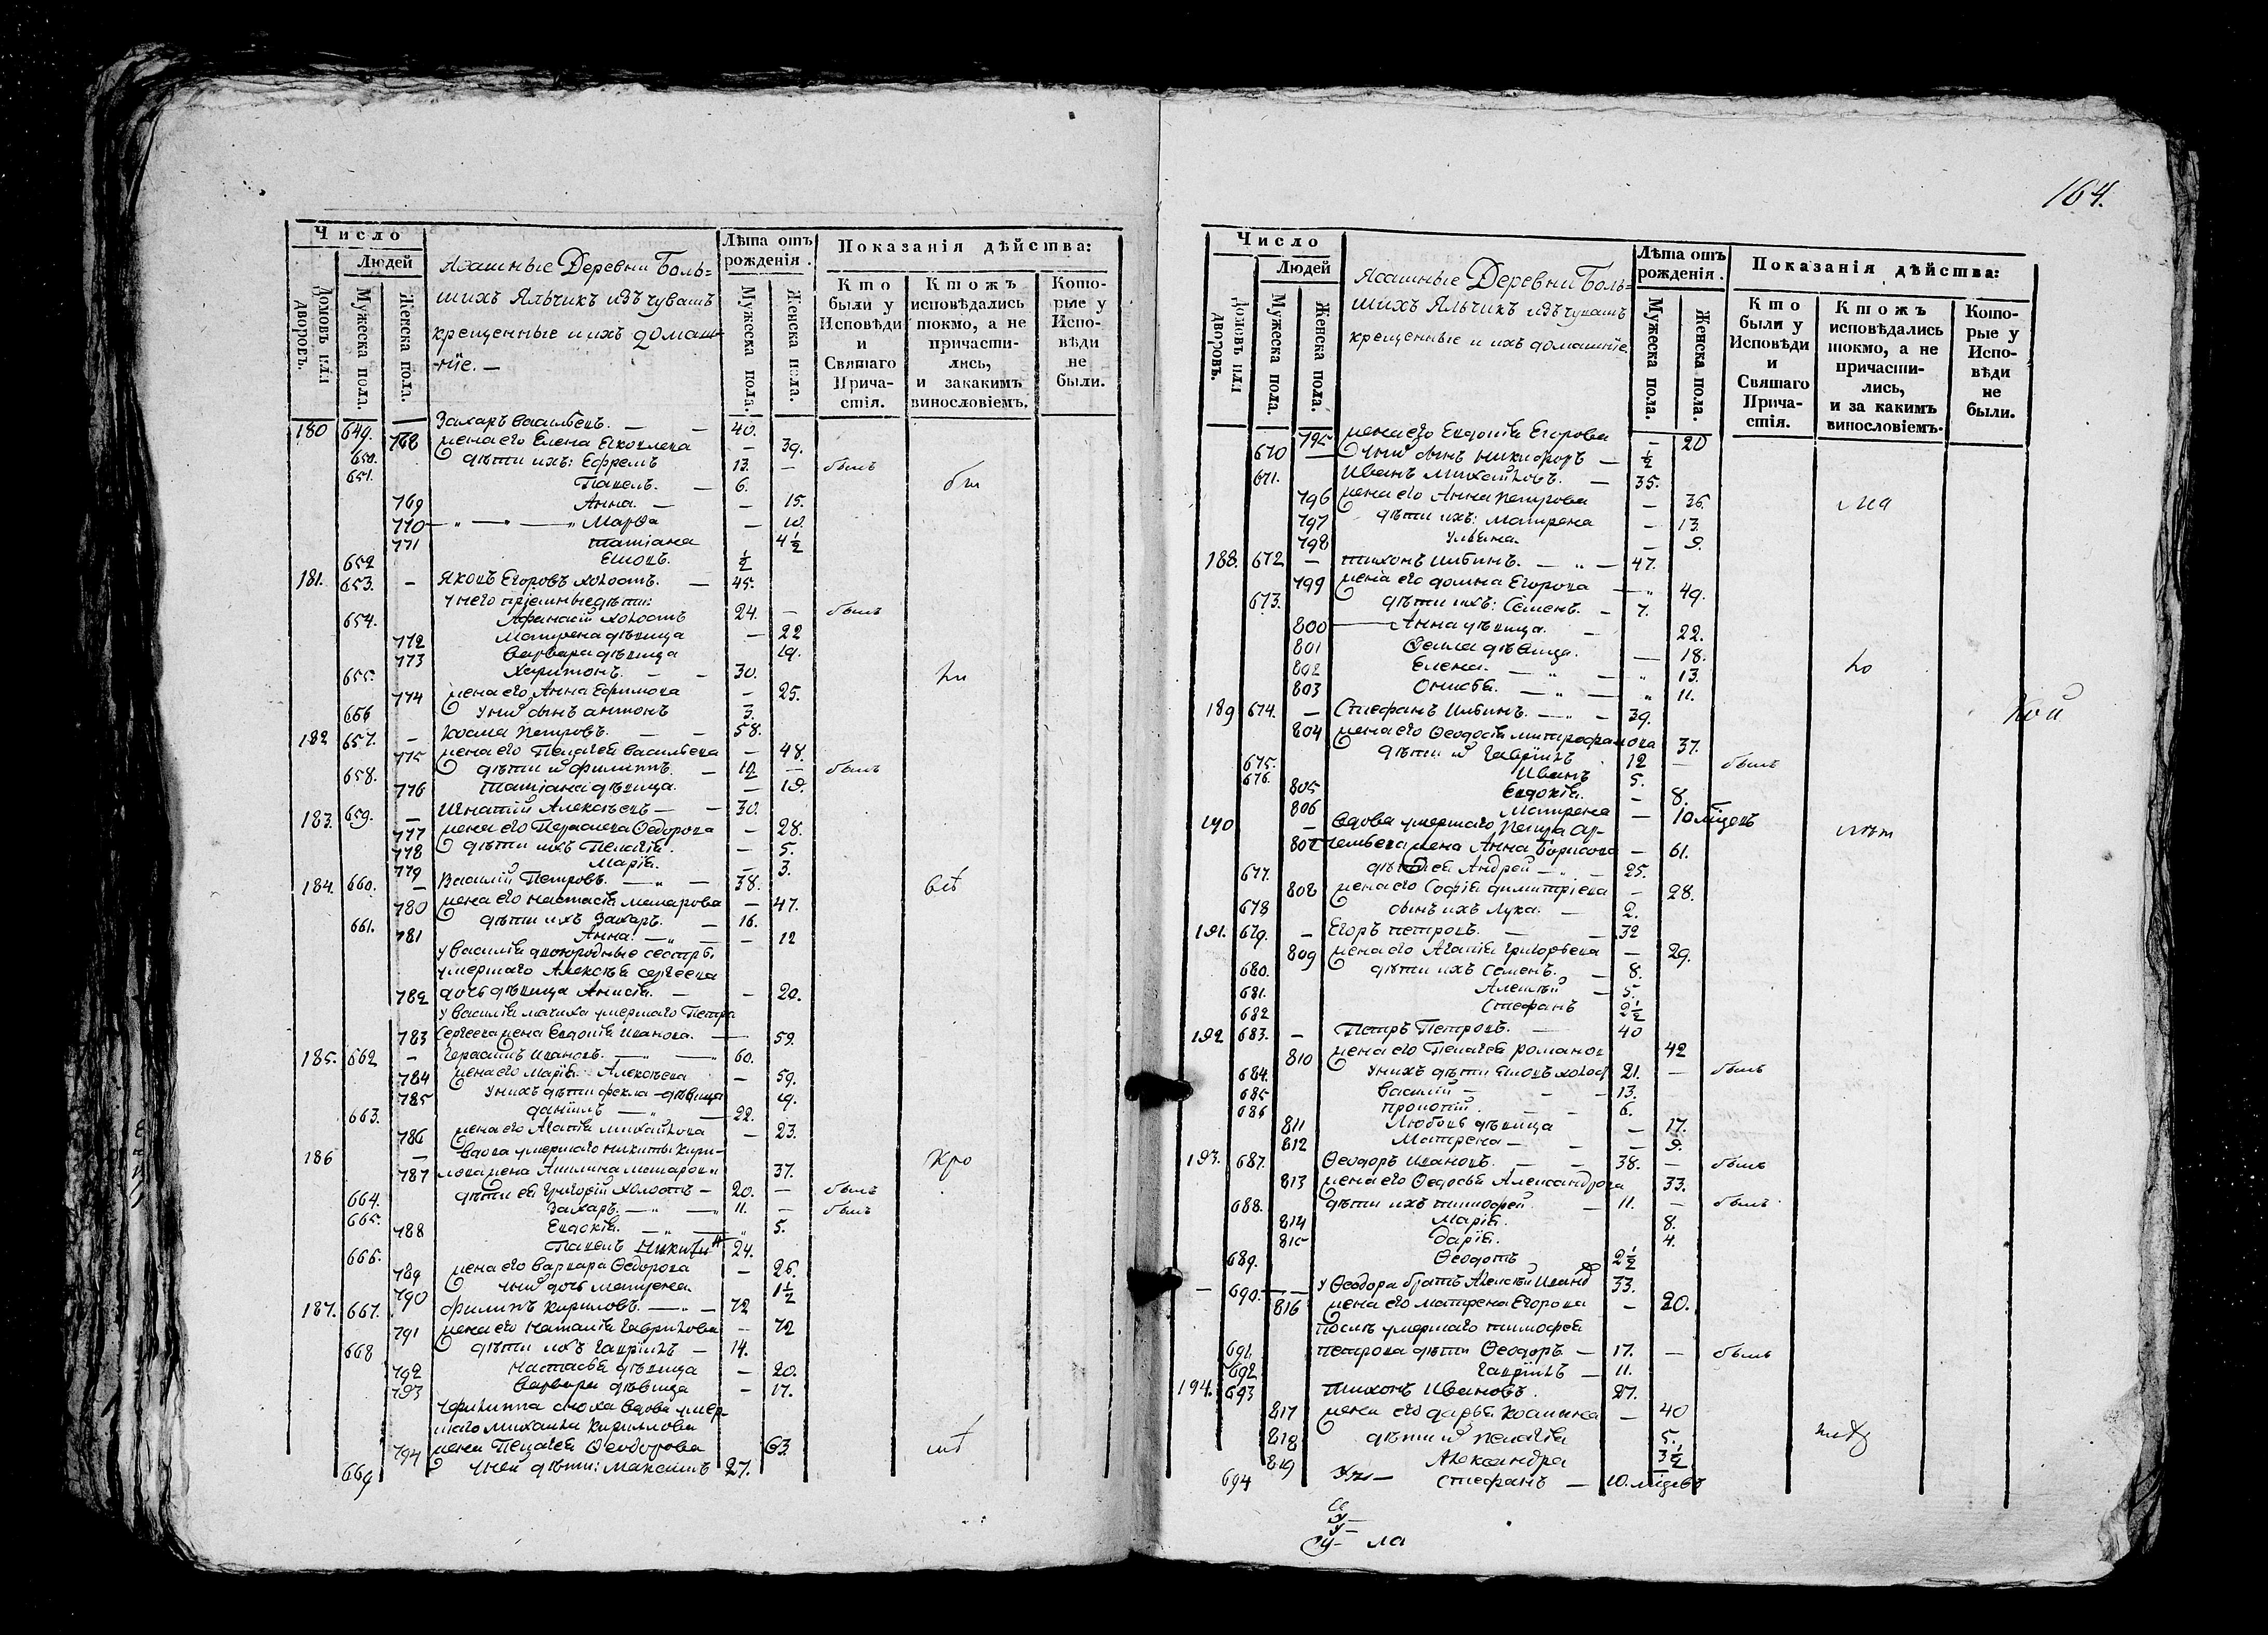 164.
Число
Людей
Домовъ или дворовъ.
Мужеска пола.
Женска пола.
Ясашные Деревни Боль=
шихъ Яльчикъ изъ чувашъ
крещенные и ихъ домаш-
ніе. —
Лѣта отъ рожденія.
Мужеска пола.
Женска пола.
Показанія дѣйства:
Кто были у Исповѣди и Святаго Прича-стія.
Ктожъ исповѣдались токмо, а не причасти-лись, и закакимъ винословіемъ.
Кото-рые у Испо-вѣди не были.
180 649. — Захаръ Васильевъ. — — 40.
768 жена его Елена Яковлева — 39.
650. дѣти ихъ: Ефремъ 13. — былъ
651. Павелъ. — 6.
769 Анна. — — 15.
770 — „ — „ Марѳа — 10.
771 Татіана 4½
652 Яковъ. ½
181. 653. — Яковъ Егоровъ холостъ. — 45.
у него пріемные дѣти:
654. Афанасій холостъ 24. — былъ
772 Матрена дѣвица — 22
773 Варвара дѣвица 19.
655. Харитонъ. — — 30.
774 жена его Анна Ефимова — 25.
656 у нихъ сынъ антонъ 3.
182 657. — Козма Петровъ. — — 58.
775 жена его Пелагея Васильева — 48.
658. дѣти ихъ Филиппъ. — — былъ
776 Татіана дѣвица. — 19.
183. 659. — Игнатій Алексѣевъ — — 30.
777 жена его Парасковья Ѳедорова — 28.
778 дѣти ихъ Пелагія. — 5.
779 Марія. — 3.
184. 660. — Василій Петровъ. — „ — 38.
780 жена его Настасія Макарова — 47.
661. дѣти ихъ Захаръ. — 16.
781 Анна. — „ — — 12
у Василія двоюродные сестры,
умершаго Алексѣя Сергѣева
782 дочь дѣвица Анисія. — — 20.
у Василія мачиха умершаго Петра
783 Сергѣева жена Евдокія Иванова. — 59.
185. 662 — Герасимъ Ивановъ. — „ — „ 60.
784 жена его Марія Алексѣева — 59.
785 у нихъ дѣти Фекла дѣвица 19.
663. Даніилъ — „ — 22.
786 жена его Агапія Михайлова — 23.
186 — Вдова умершаго Никиты Кири-
787 лова жена Акилина Макарова 37.
664. дѣти ея Григорій холостъ — 20. — былъ
665. Захаръ. — „ — „ 11. — былъ
788 Евдокія. — „ — „ 5.
666. Павелъ Никитинъ 24.
789 жена его Варвара Ѳедорова — 26.
790 у нихъ дочь Матрена. 1½
187. 667. Филиппъ Кириловъ. — „ — 72
791 жена его Наталія Гаврилова — 72
668 дѣти ихъ Гаврiилъ — 14.
792 Настасья дѣвица — 20.
793 Варвара дѣвица — 17.
у Филиппа сноха вдова умер-
шаго Михаила Кирилова
794 жена Пелагея Ѳеодорова 63.
669 у нея дѣти: Максимъ 27.
Число
Людей
Домовъ или дворовъ.
Мужеска пола.
Женска пола.
Ясашные Деревни Боль=
шихъ Яльчикъ изъ чувашъ
крещенные и ихъ домашніе.
Лѣта отъ рожденія.
Мужеска пола.
Женска пола.
Показанія дѣйства:
Кто были у Исповѣди и Святаго Прича-стія.
Ктожъ исповѣдались токмо, а не причасти-лись, и за какимъ винословіемъ.
Кото-рые у Испо-вѣди не были.
795 жена его Евдокія Егорова — 20
670 — у нихъ сынъ Никифоръ — ½
671. Иванъ Михайловъ. — 35.
796 жена его Анна Петрова — 36.
797 дѣти ихъ: Матрена — 13.
798 Ульяна. — 9.
188. 672 — Тихонъ Ильинъ. — „ — 47.
799 жена его Домна Егорова — „ 49.
673. дѣти ихъ: Семенъ. — 7.
800 — Анна дѣвица. — 22.
801 Ѳекла дѣвица. — 18.
802 Елена. — „ — „ 13.
803 Онисья. — „ — „ 11.
189 674. — Стефанъ Ильинъ. — „ — 39.
804 жена его Ѳеодосія Митрофанова 37.
675. дѣти ихъ Гавріилъ 12 — былъ
676. Иванъ 5.
805 Евдокія. — 8.
806 Матрена — 10 мѣсяцъ
190 — Вдова умершаго Петра Ар-
807 темьева жена Анна Борисова — 61.
677. дѣти ея Андрей — „ — 25.
808 жена его Софія Димитріева — 28.
678 сынъ ихъ Лука. — 2.
191. 679. — Егоръ Петровъ. — — 32
809 жена его Агапія Григорьева — 29.
680. дѣти ихъ Семенъ. — 8.
681. Алексѣй — 5.
682 Стефанъ 2½
192 683. — Петръ Петровъ. — 40
810 жена его Пелагея Романов 42
684. у нихъ дѣти Яковъ холост 21. — былъ
685 Василій — — — 13.
686 Прокопій. — — 6.
811 Любовь дѣвица — 17.
812 Матрена — — — 9.
193. 687. Ѳеодоръ Ивановъ. — — 38. — былъ
813 жена его Ѳедосья Александрова 33.
688. дѣти ихъ Тимофей. — 11. — былъ
814 Марія. 8.
815 Дарія. 4.
689. Ѳеодотъ 2½
— 690. — — у Ѳеодора братъ Алексѣй Иванов 33.
816 жена его Матрена Егорова — 20.
послѣ умершаго Тимофея
691. Петрова дѣти Ѳеодоръ. — 17. — былъ
692 Гавріилъ — 11.
194. 693 Тихонъ Ивановъ. 27.
817 жена его Дарья Козмина — 40
818 дѣти ихъ Пелагія 5.
819 Александра 3½
694 Стефанъ — 10. мѣсяцъ